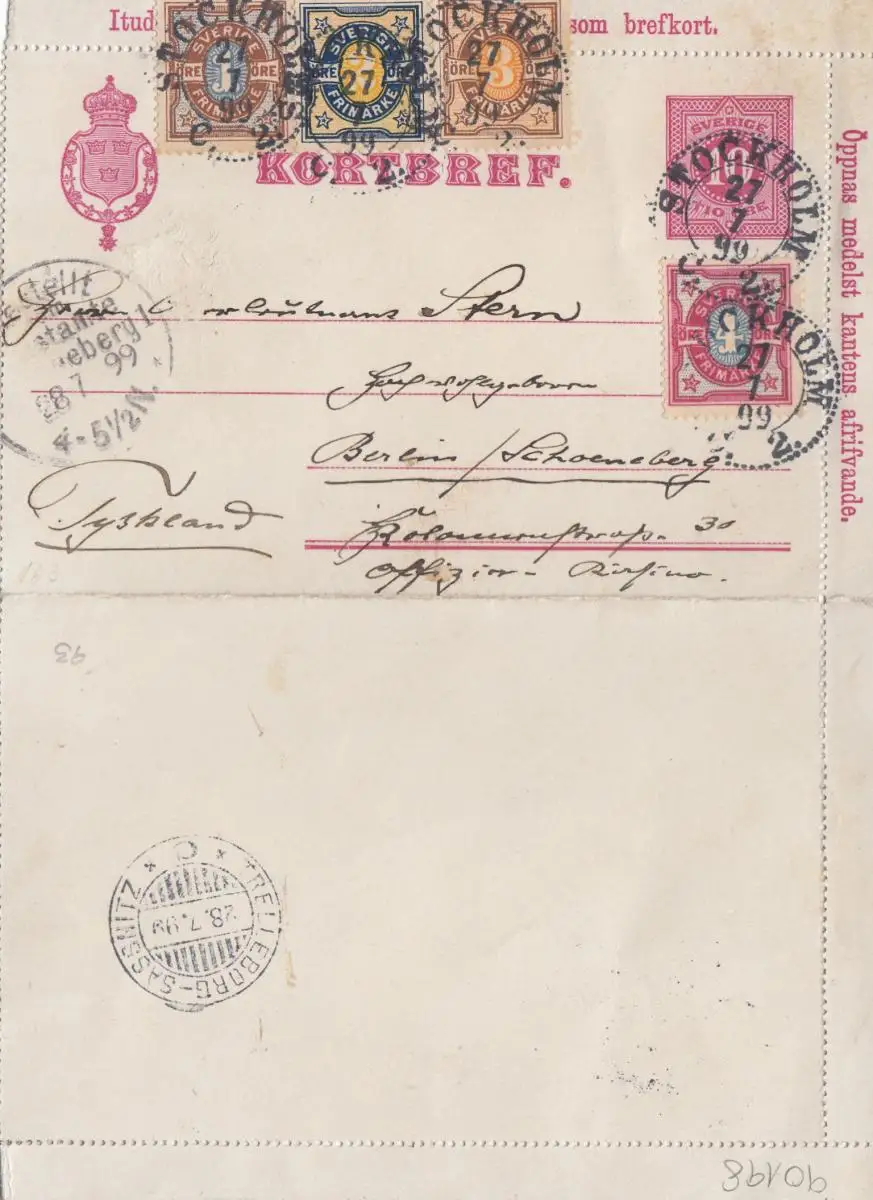 Itud som brefkort.
SVERIGE
1
ÖRE ÖRE
FRIMÄRKE
STOCKHOLM
27
7
99
C. 2.
SVERIGE
2
ÖRE
FRIMÄRKE
STOCKHOLM
27
7
99
C. 2.
SVERIGE
3
ÖRE
FRIMÄRKE
STOCKHOLM
27
7
99
2.
KORTBREF.
SVERIGE
10
10 ÖRE
STOCKHOLM
27
7
99
C. 2.
Öppnas medelst kantens afrifvande.
SVERIGE
4
ÖRE ÖRE
FRIMÄRKE
STOCKHOLM
27
7
99
2.
Stern
Hochwohlgeboren
Berlin/Schoeneberg.
Tyskland
30
Offizier-Kasino.
stellt
28 7 99
4-5½N.
93
TRELLEBORG-SASSNITZ
C
28.7.99
90198